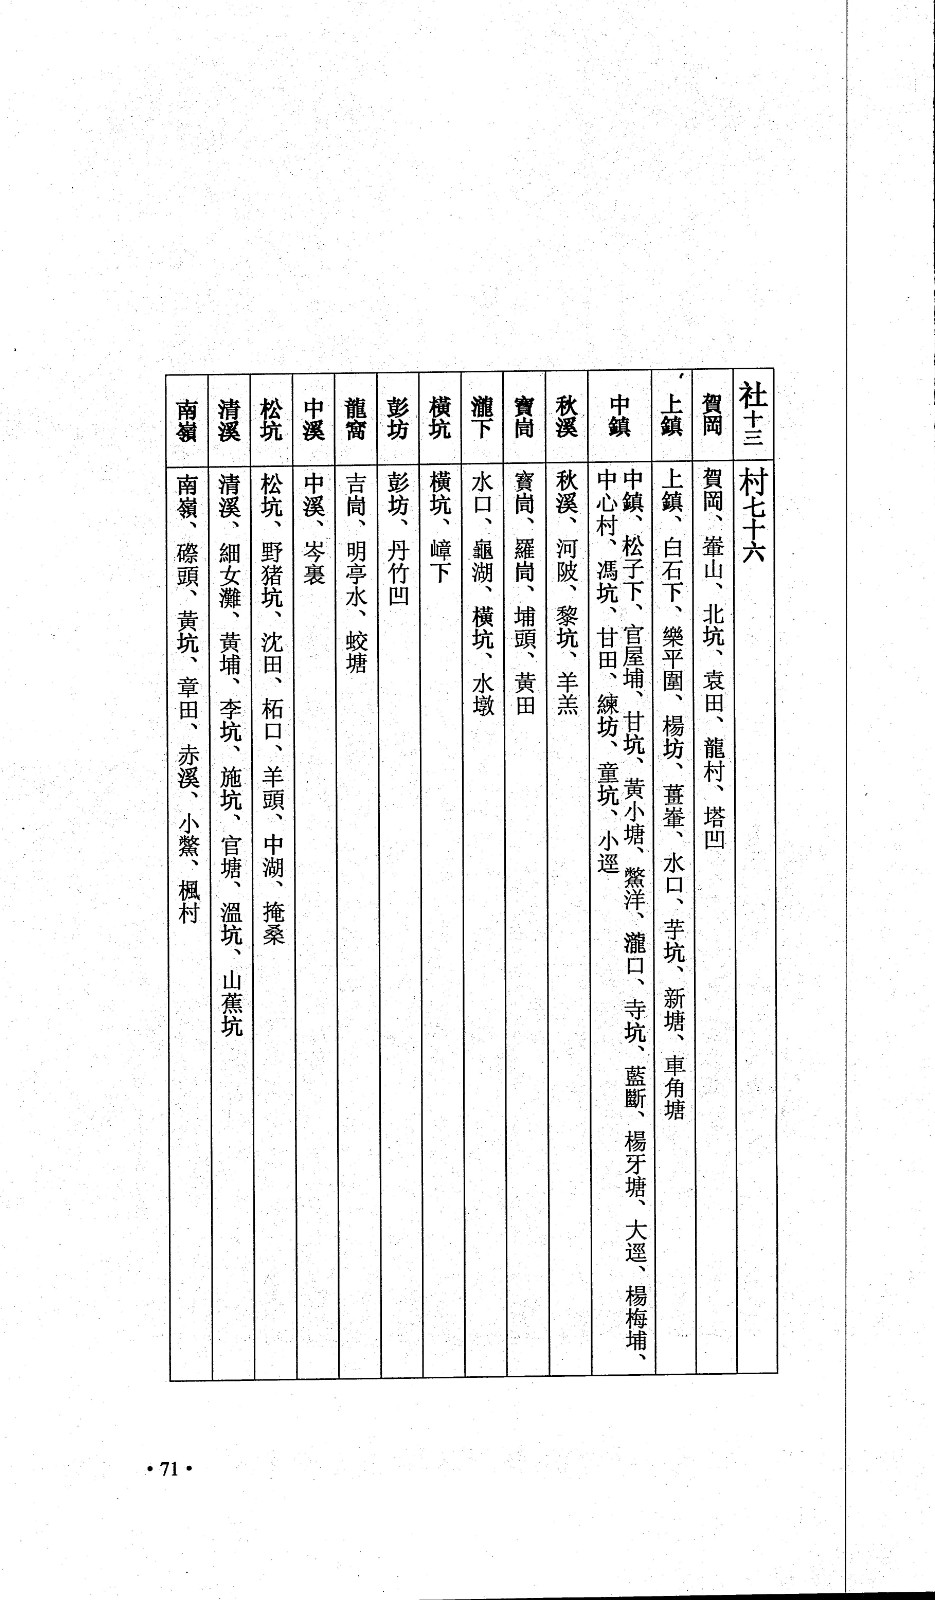 社十三 村七十六
賀岡 賀岡、輋山、北坑、袁田、龍村、塔凹
上鎮 上鎮、白石下、樂平圍、楊坊、薑輋、水口、芋坑、新塘、車角塘
中鎮 中鎮、松子下、官屋埔、甘坑、黃小塘、鱉洋、瀧口、寺坑、藍斷、楊牙塘、大逕、楊梅埔、
中心村、馮坑、甘田、練坊、童坑、小逕
秋溪 秋溪、河陂、黎坑、羊羔
寶崗 寶崗、羅崗、埔頭、黃田
瀧下 水口、龜湖、橫坑、水墩
橫坑 橫坑、嶂下
彭坊 彭坊、丹竹凹
龍窩 吉崗、明亭水、蛟塘
中溪 中溪、岑裏
松坑 松坑、野猪坑、沈田、柘口、羊頭、中湖、掩桑
清溪 清溪、細女灘、黃埔、李坑、施坑、官塘、溫坑、山蕉坑
南嶺 南嶺、磜頭、黃坑、章田、赤溪、小鱉、楓村
·71·